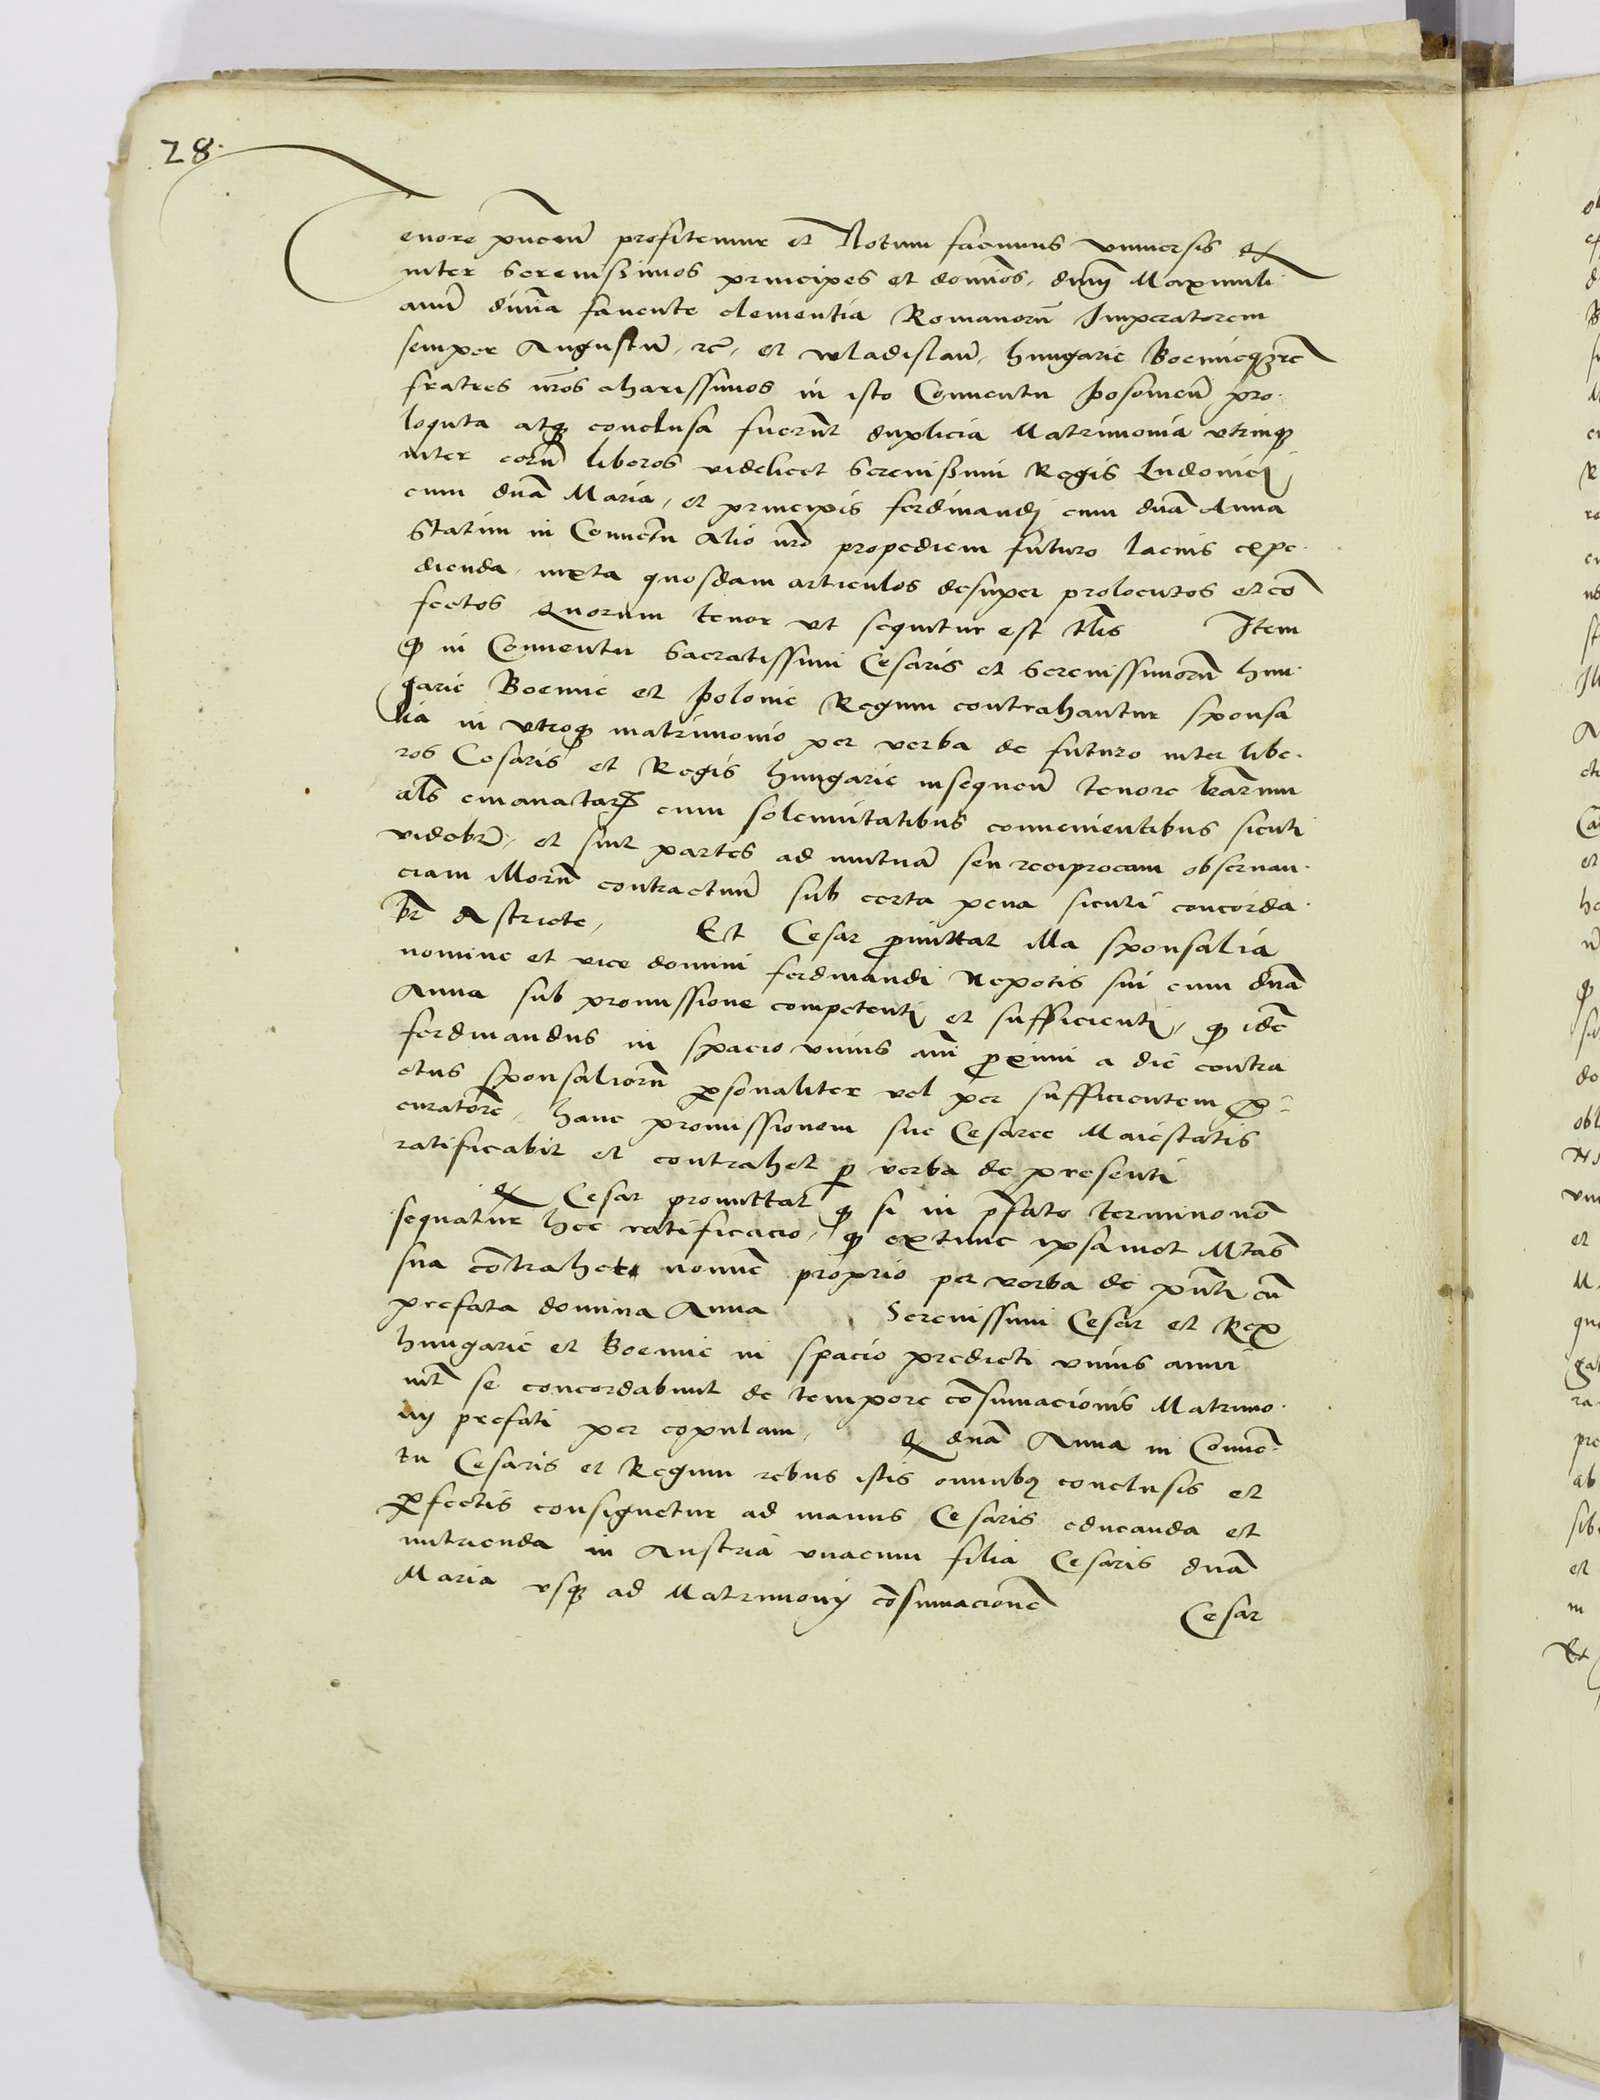 28.
Tenore pnciũ profitemur et Notum facimus vniuersis Q
inter Serenissimos principes et domiõs, dnm̃ Maximili
anũ diuina fauente clementia Romanorũ Imperatorem
semper Augustũ, rc̃, et wladislaũ, hungarie Boemieqȝ rc̃
fratres nr̃os charissimos in isto Conuentu posonien̄ pro
loquta atqȝ conclusa fuerũt duplicia Matrimonia vtrinqȝ
inter eorũ liberos videlicet Serenissimi Regis Ludouici
cum dnã Maria, et principis ferdinandi cum dnã Anna
Statim in Conuẽtu alio nr̃o propediem futuro lacius expe
dienda, iuxta quosdam articulos desuper prolocutos et cõ
fectos Quorum tenor vt sequitur est tl̃is Item
Q in Conuentu Sacratissimi Cesaris et Serenissimorũ hun
garie Boemie et polonie Regum contrahantur sponsa
lia in vtroqȝ matrimonio per verba de futuro inter libe
ros Cesaris et Regis hungarie insequen̄ tenore lr̃arum
al̃s emanatarȝ cum solennitatibus conuenientibus sicuti
videbr̃, et sint partes ad mutuã seu reciprocam obseruan
ciam illorũ contractuũ sub certa pena sicuti concorda
br̃ Astricte, Et Cesar p̃mittat illa sponsalia
nomine et vice domini ferdinandi Nepotis sui cum dnã
Anna sub promissione competenti et sufficienti, qȝ idẽ
ferdinandus in spacio vnius anni p̃ximi a die contra
ctus sponsaliorũ p̱sonaliter vel per sufficientem p̃
curatorẽ, hanc promissionem sue Cesaree Maiestatis
ratificabit et contrahet p̱ verba de presenti
Q Cesar promittat qȝ si in p̃fato termino nõ
sequatur hec ratificacio, qȝ extunc ipsamet Mtas̃
sua cõtrahet nomĩe proprio per verba de pñti cũ
prefata domina Anna Serenissimi Cesar et Rex
hungarie et Boemie in spacio predicti vnius anni
int̃ se concordabunt de tempore cõsumacionis Matrimo
nij prefati per copulam, Q dnã Anna in Conuẽ
tu Cesaris et Regum rebus istis omnibȝ conclusis et
p̱fectis consignetur ad manus Cesaris educanda et
nutrienda in Austria vnacum filia Cesaris dnã
Maria vsqȝ ad Matrimonij cõsumacionẽ Cesar